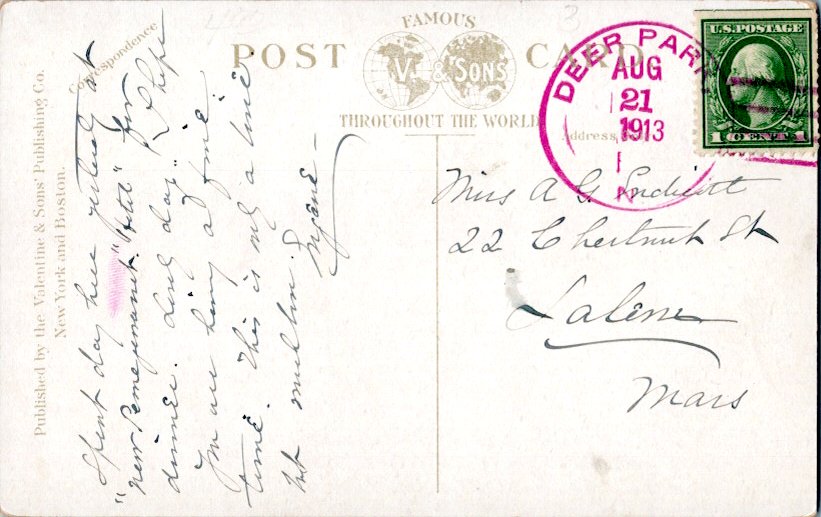 FAMOUS
POST CARD
V. & SONS
THROUGHOUT THE WORLD
Correspondence
Address
Published by the Valentine & Sons' Publishing Co.
New York and Boston.
DEER PARK
AUG
21
1913
N
U.S. POSTAGE
1 CENT 1
Spent day here yesterday at
"new Pemigewasset" "Hotel" for
dinner. Lovely day & I hope
you are having a fine
time. This is only a line
but much love.
Miss A G Endicott
22 Chestnut St
Salem
Mass